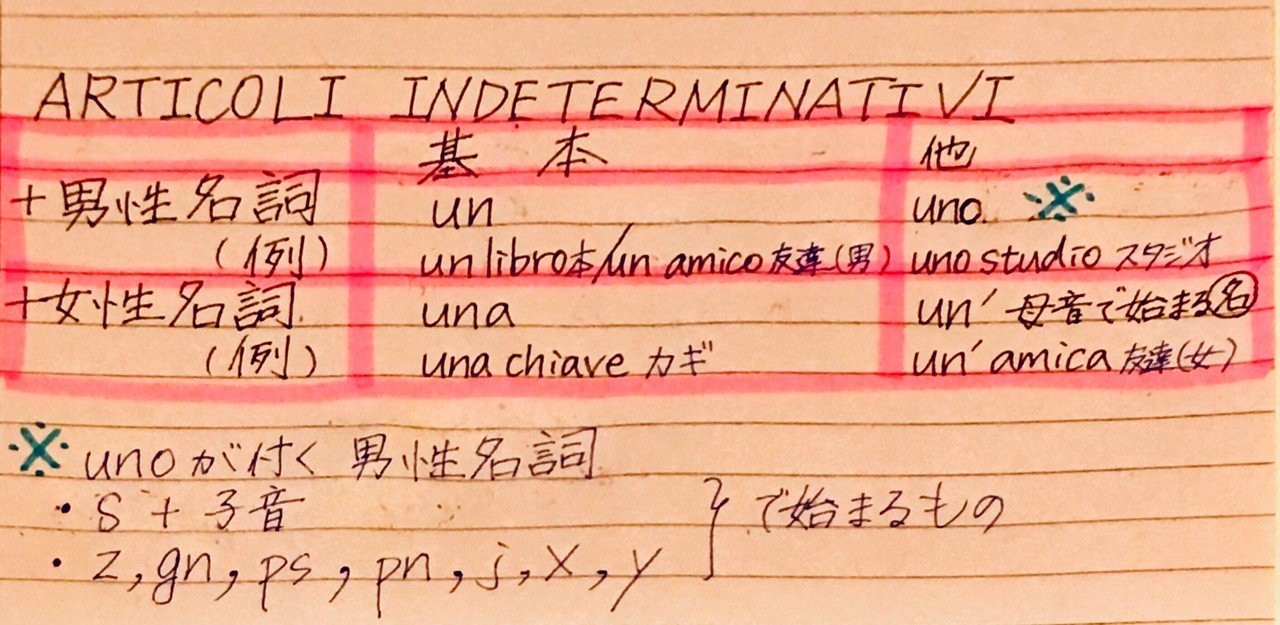 ARTICOLI INDETERMINATIVI
基本 他
+男性名詞 un uno. ※
(例) un libro本/un amico友達(男) uno studio スタジオ
+女性名詞 una un' 母音で始まる名
(例) una chiave カギ un'amica友達(女)
※ unoが付く 男性名詞
・s+子音
・z, gn, ps, pn, j, x, y } で始まるもの